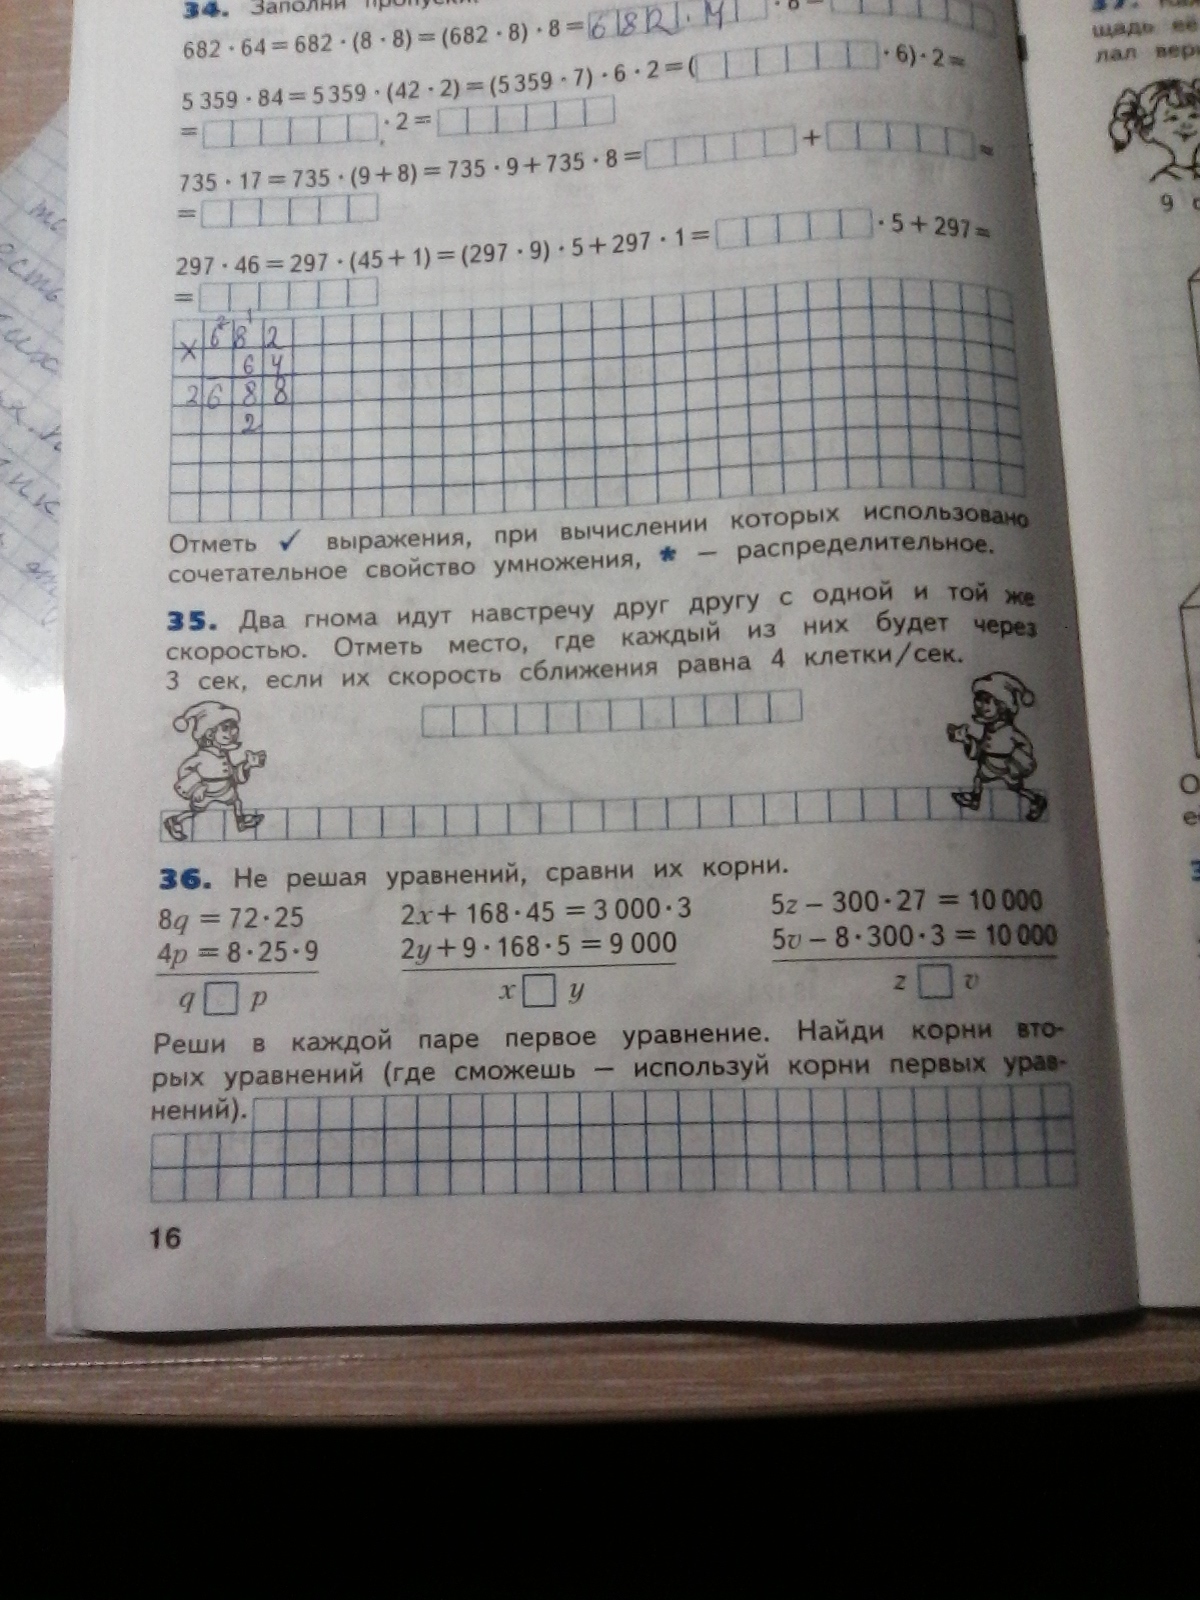 34. Заполни пропуски.
682 · 64 = 682 · (8 · 8) = (682 · 8) · 8 = 682 · 4 · 8 =
5 359 · 84 = 5 359 · (42 · 2) = (5 359 · 7) · 6 · 2 = ( · 6) · 2 =
= · 2 =
735 · 17 = 735 · (9 + 8) = 735 · 9 + 735 · 8 = + =
=
297 · 46 = 297 · (45 + 1) = (297 · 9) · 5 + 297 · 1 = · 5 + 297 =
=
2 1
× 6 8 2
6 4
2 6 8 8
2
Отметь ✓ выражения, при вычислении которых использовано
сочетательное свойство умножения, * — распределительное.
35. Два гнома идут навстречу друг другу с одной и той же
скоростью. Отметь место, где каждый из них будет через
3 сек, если их скорость сближения равна 4 клетки/сек.
36. Не решая уравнений, сравни их корни.
8q = 72 · 25 2x + 168 · 45 = 3 000 · 3 5z − 300 · 27 = 10 000
4p = 8 · 25 · 9 2y + 9 · 168 · 5 = 9 000 5v − 8 · 300 · 3 = 10 000
q □ p x □ y z □ v
Реши в каждой паре первое уравнение. Найди корни вто-
рых уравнений (где сможешь — используй корни первых урав-
нений).
16
37.
щадь её
лал
9